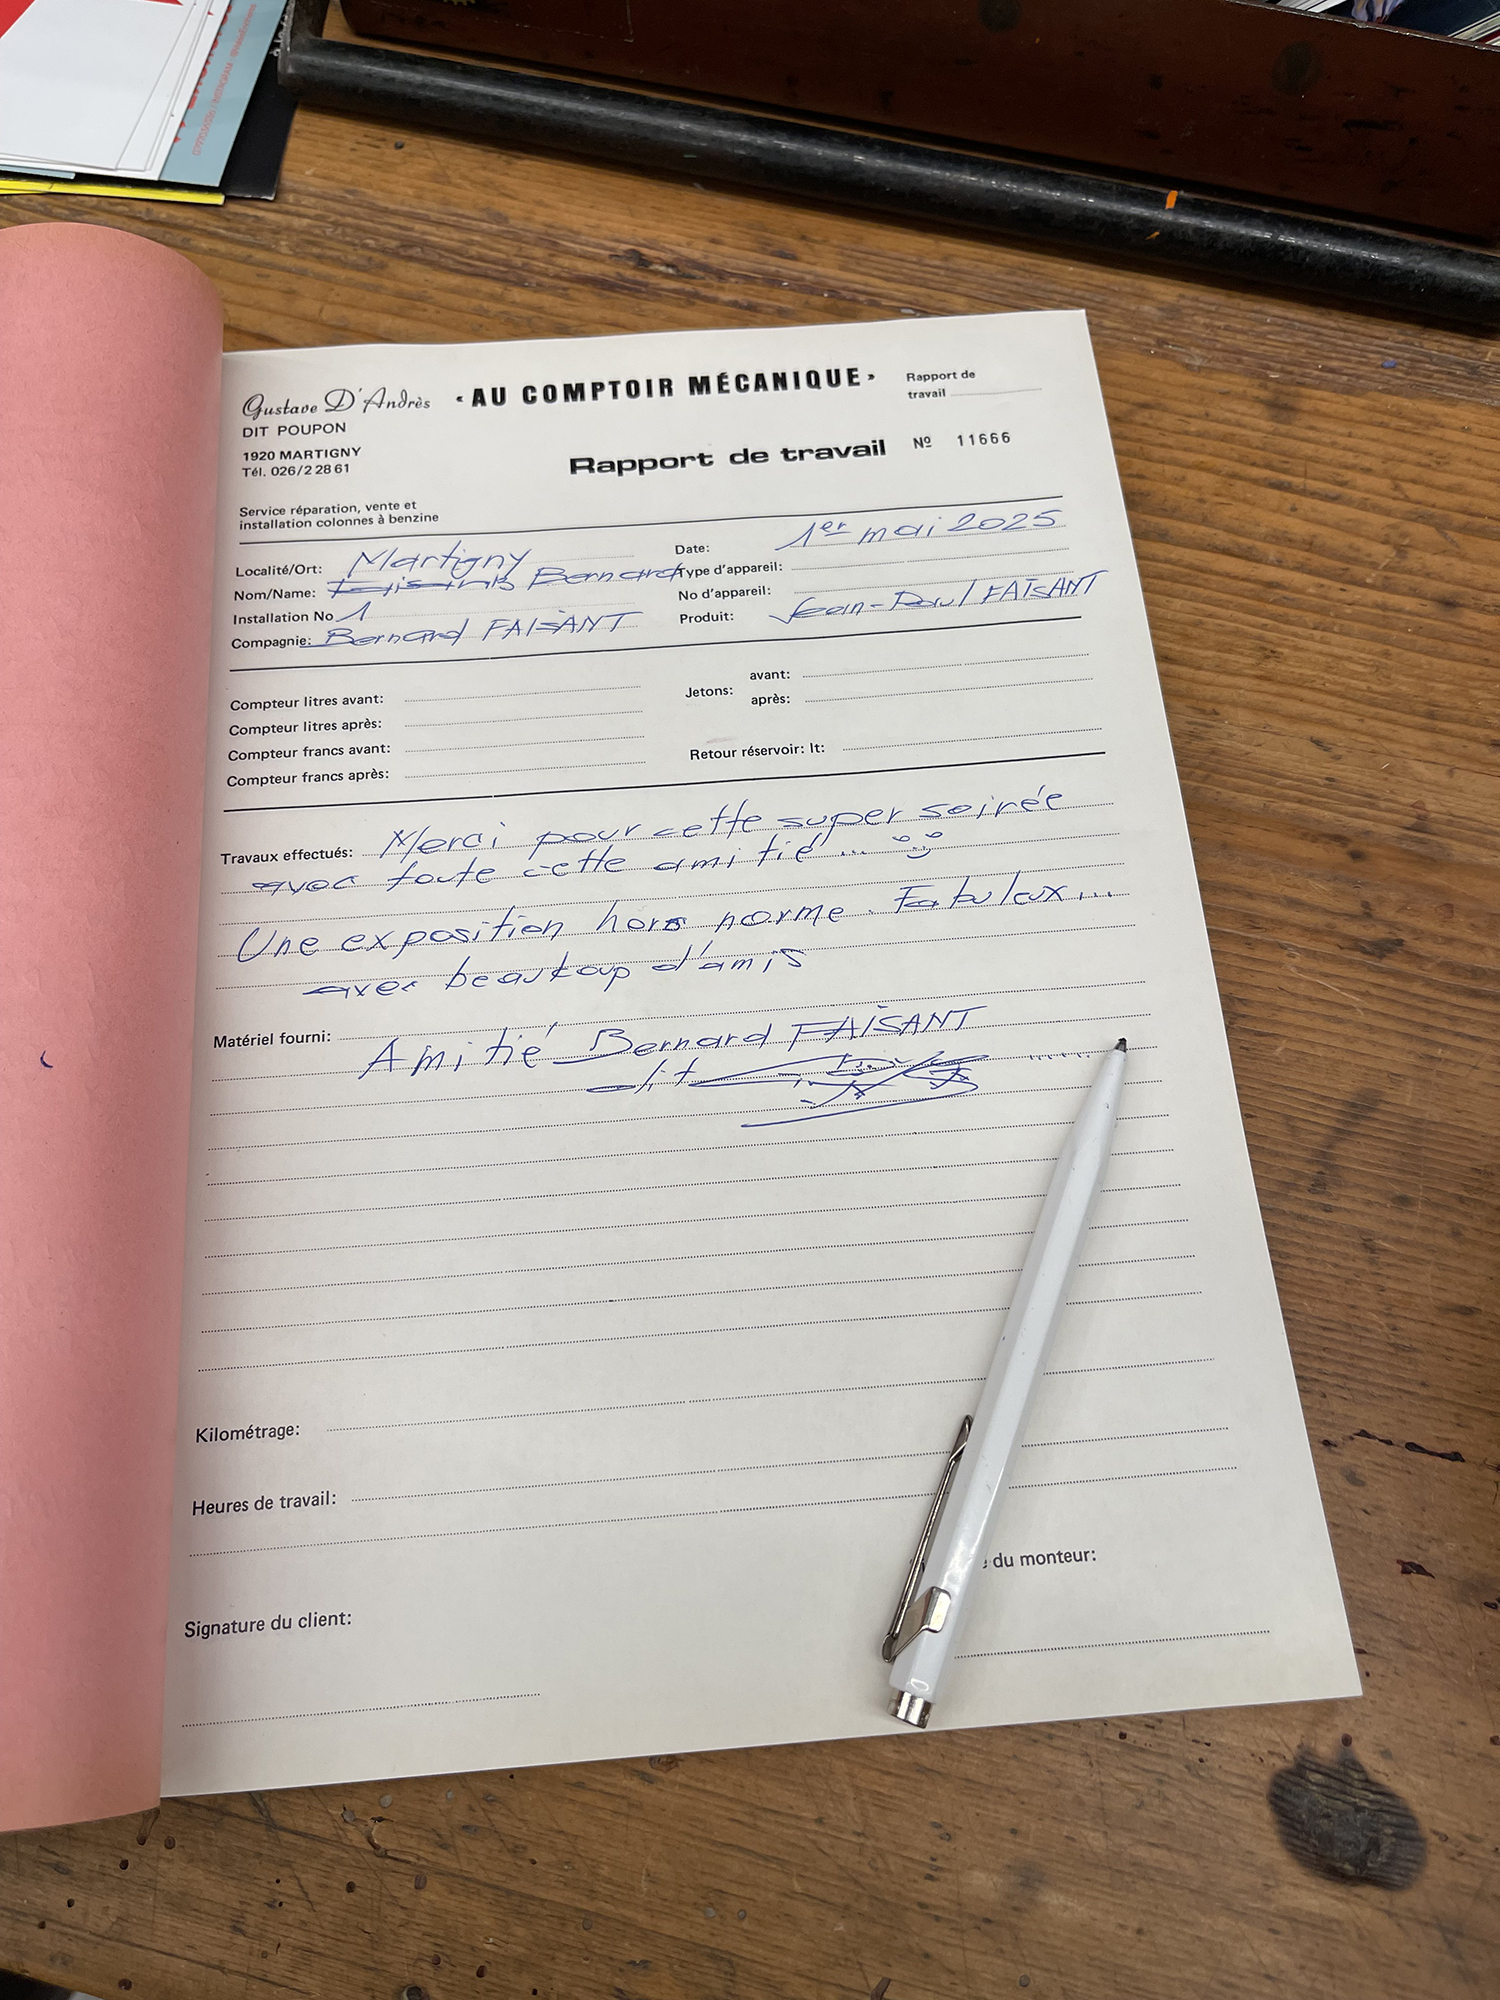 Gustave D'Andrès
« AU COMPTOIR MÉCANIQUE »
Rapport de
travail
DIT POUPON
1920 MARTIGNY
Tél. 026/2 28 61
Rapport de travail
Nº 11666
Service réparation, vente et
installation colonnes à benzine
Localité/Ort: Martigny
Date: 1er mai 2025
Nom/Name: Bernard
Type d'appareil:
Installation No 1
No d'appareil:
Compagnie: Bernard FAISANT
Produit: Jean-Paul FAISANT
Compteur litres avant:
Compteur litres après:
Compteur francs avant:
Compteur francs après:
Jetons:
avant:
après:
Retour réservoir: lt:
Travaux effectués: Merci pour cette super soirée
avec toute cette amitié...
Une exposition hors norme. Fabuleux...
avec beaucoup d'amis
Matériel fourni:
Amitié Bernard FAISANT
dit
Kilométrage:
Heures de travail:
du monteur:
Signature du client: